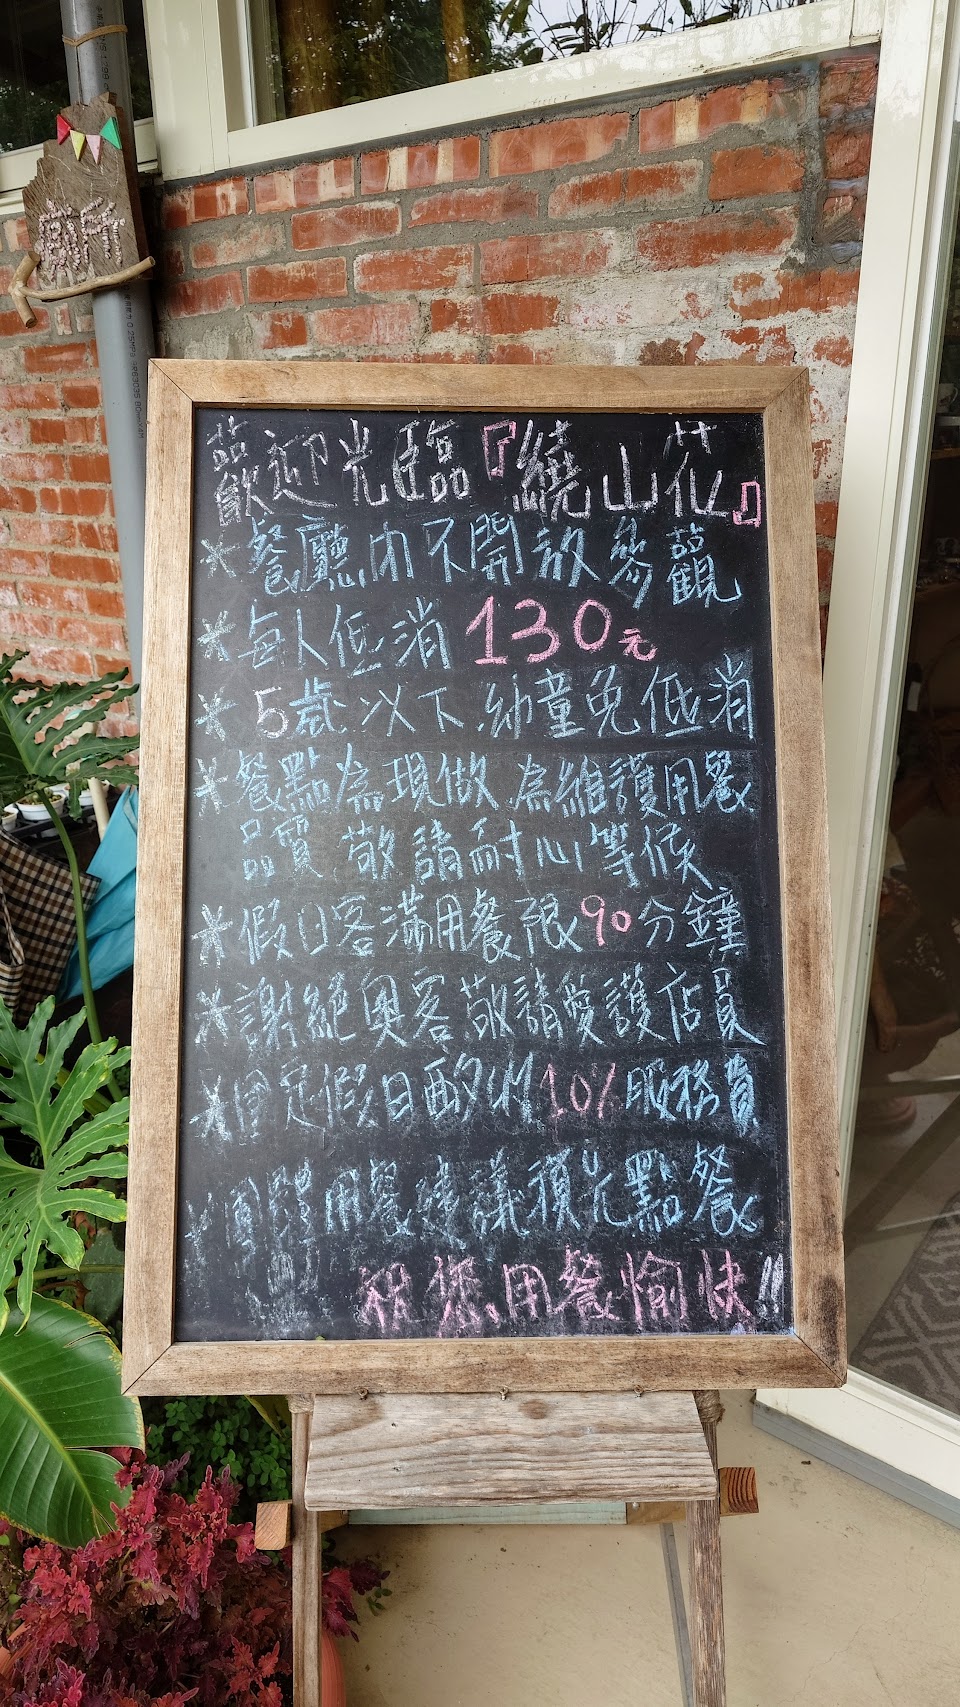 歡迎光臨『繞山花』
*餐廳內不開放參觀
*每人低消130元
*5歲以下幼童免低消
*餐點為現做 為維護用餐
品質 敬請耐心等候
*假日客滿用餐限90分鐘
*謝絕奧客敬請愛護店員
*固定假日酌收10%服務費
*團體用餐建議預先點餐
祝您用餐愉快!!